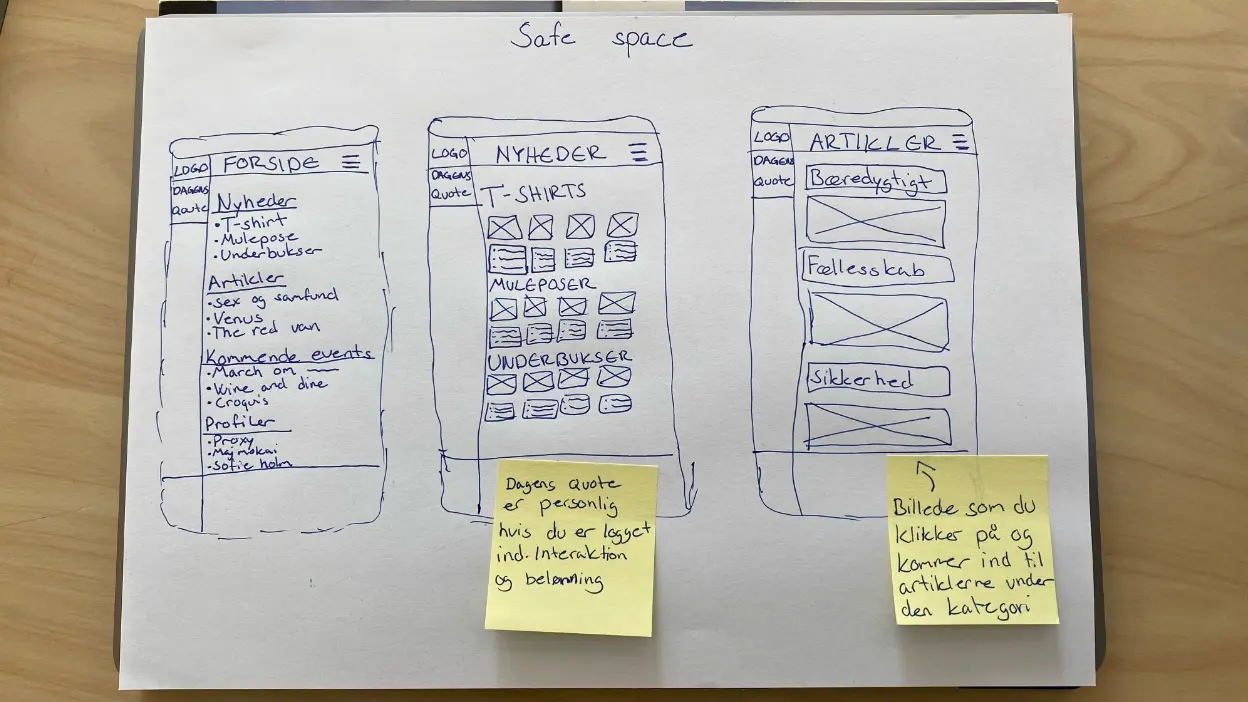 Safe space
LOGO
FORSIDE
DAGENS
Quote
Nyheder
• T-shirt
• Mulepose
• Underbukser
Artikler
• Sex og samfund
• Venus
• The red van
Kommende events
• March om
• Wine and dine
• Croquis
Profiler
• Proxy
• Maj mokai
• Sofie holm
LOGO
NYHEDER
DAGENS
Quote
T-SHIRTS
MULEPOSER
UNDERBUKSER
Dagens Quote
er personlig
hvis du er logget
ind. Interaktion
og belønning
LOGO
ARTIKLER
DAGENS
Quote
Bæredygtigt
Fællesskab
Sikkerhed
Billede som du
klikker på og
kommer ind til
artiklerne under
den kategori